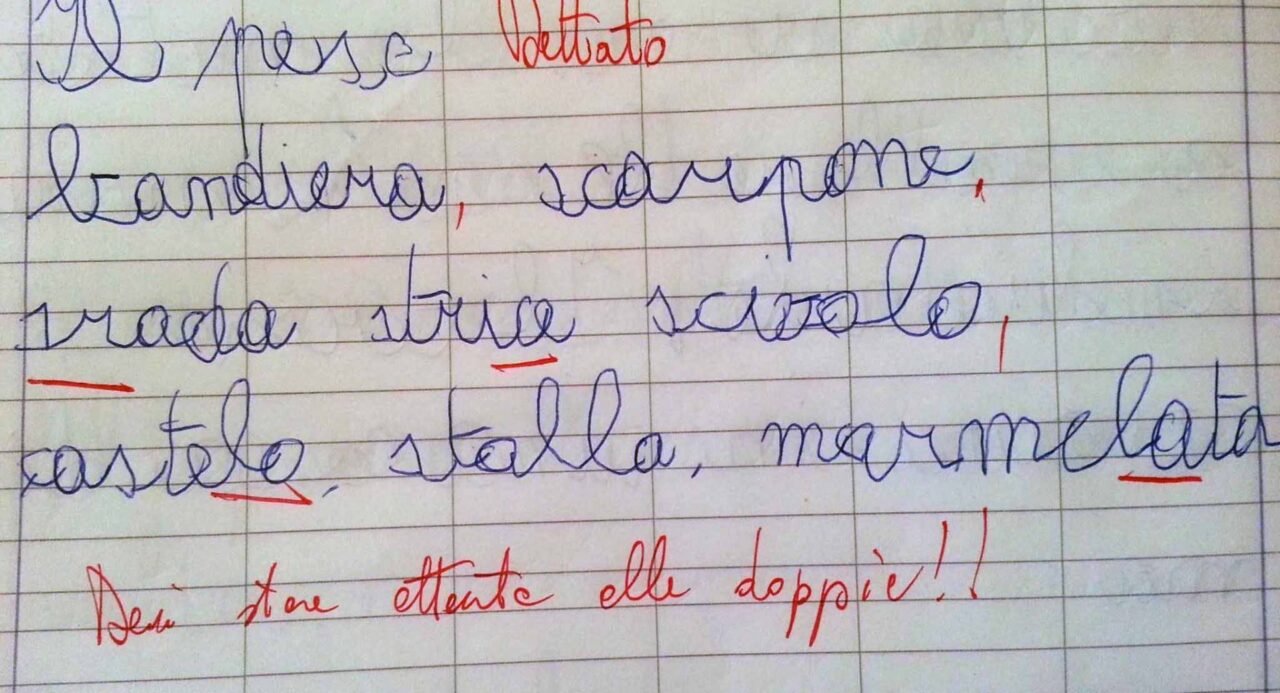 Il pese Dettato
bandiera, scarpone,
srada strice scivolo,
castelo, stalla, marmelata
Devi stare attente alle doppie!!